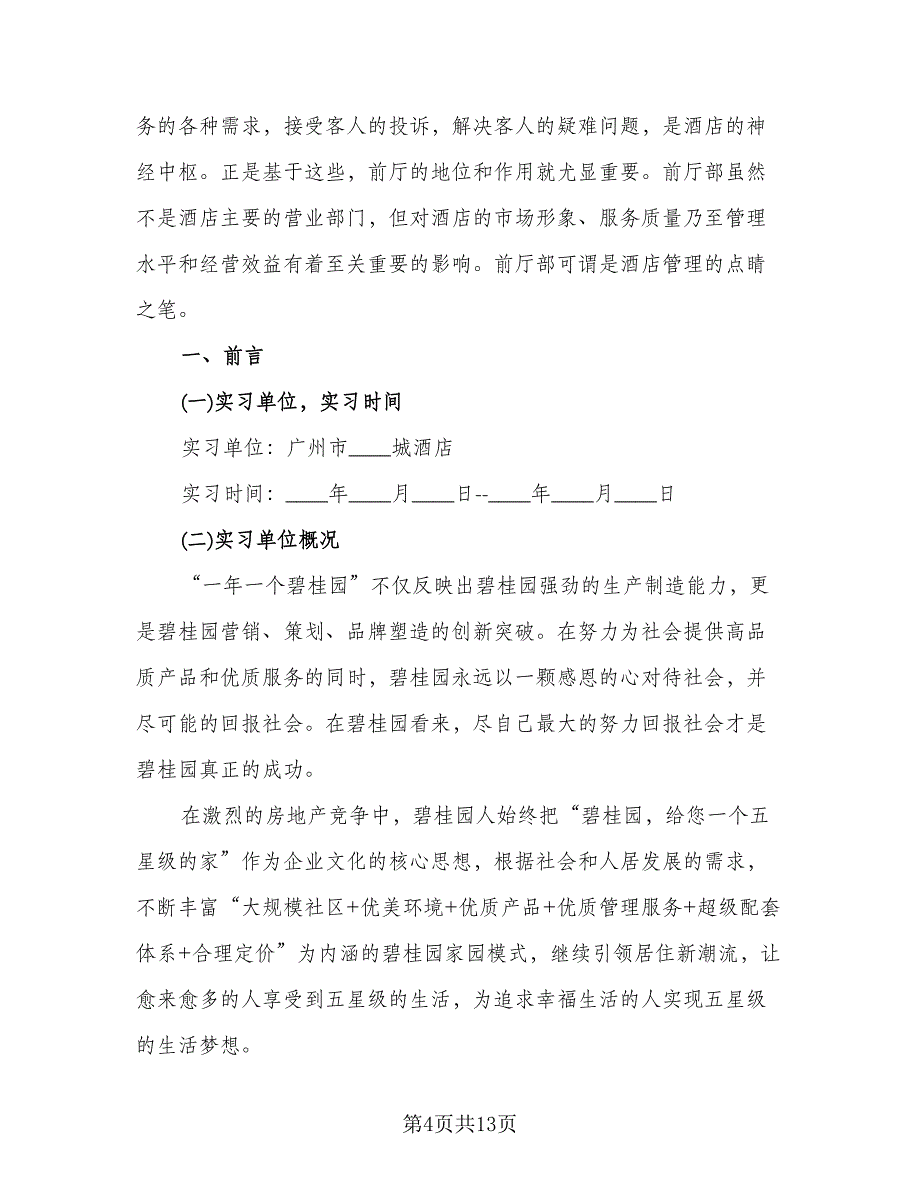 务的各种需求，接受客人的投诉，解决客人的疑难问题，是酒店的神
经中枢。正是基于这些，前厅的地位和作用就尤显重要。前厅部虽然
不是酒店主要的营业部门，但对酒店的市场形象、服务质量乃至管理
水平和经营效益有着至关重要的影响。前厅部可谓是酒店管理的点睛
之笔。
一、前言
(一)实习单位，实习时间
实习单位：广州市____城酒店
实习时间：____年____月____日--____年____月____日
(二)实习单位概况
“一年一个碧桂园”不仅反映出碧桂园强劲的生产制造能力，更
是碧桂园营销、策划、品牌塑造的创新突破。在努力为社会提供高品
质产品和优质服务的同时，碧桂园永远以一颗感恩的心对待社会，并
尽可能的回报社会。在碧桂园看来，尽自己最大的努力回报社会才是
碧桂园真正的成功。
在激烈的房地产竞争中，碧桂园人始终把“碧桂园，给您一个五
星级的家”作为企业文化的核心思想，根据社会和人居发展的需求，
不断丰富“大规模社区+优美环境+优质产品+优质管理服务+超级配套
体系+合理定价”为内涵的碧桂园家园模式，继续引领居住新潮流，让
愈来愈多的人享受到五星级的生活，为追求幸福生活的人实现五星级
的生活梦想。
第4页共13页